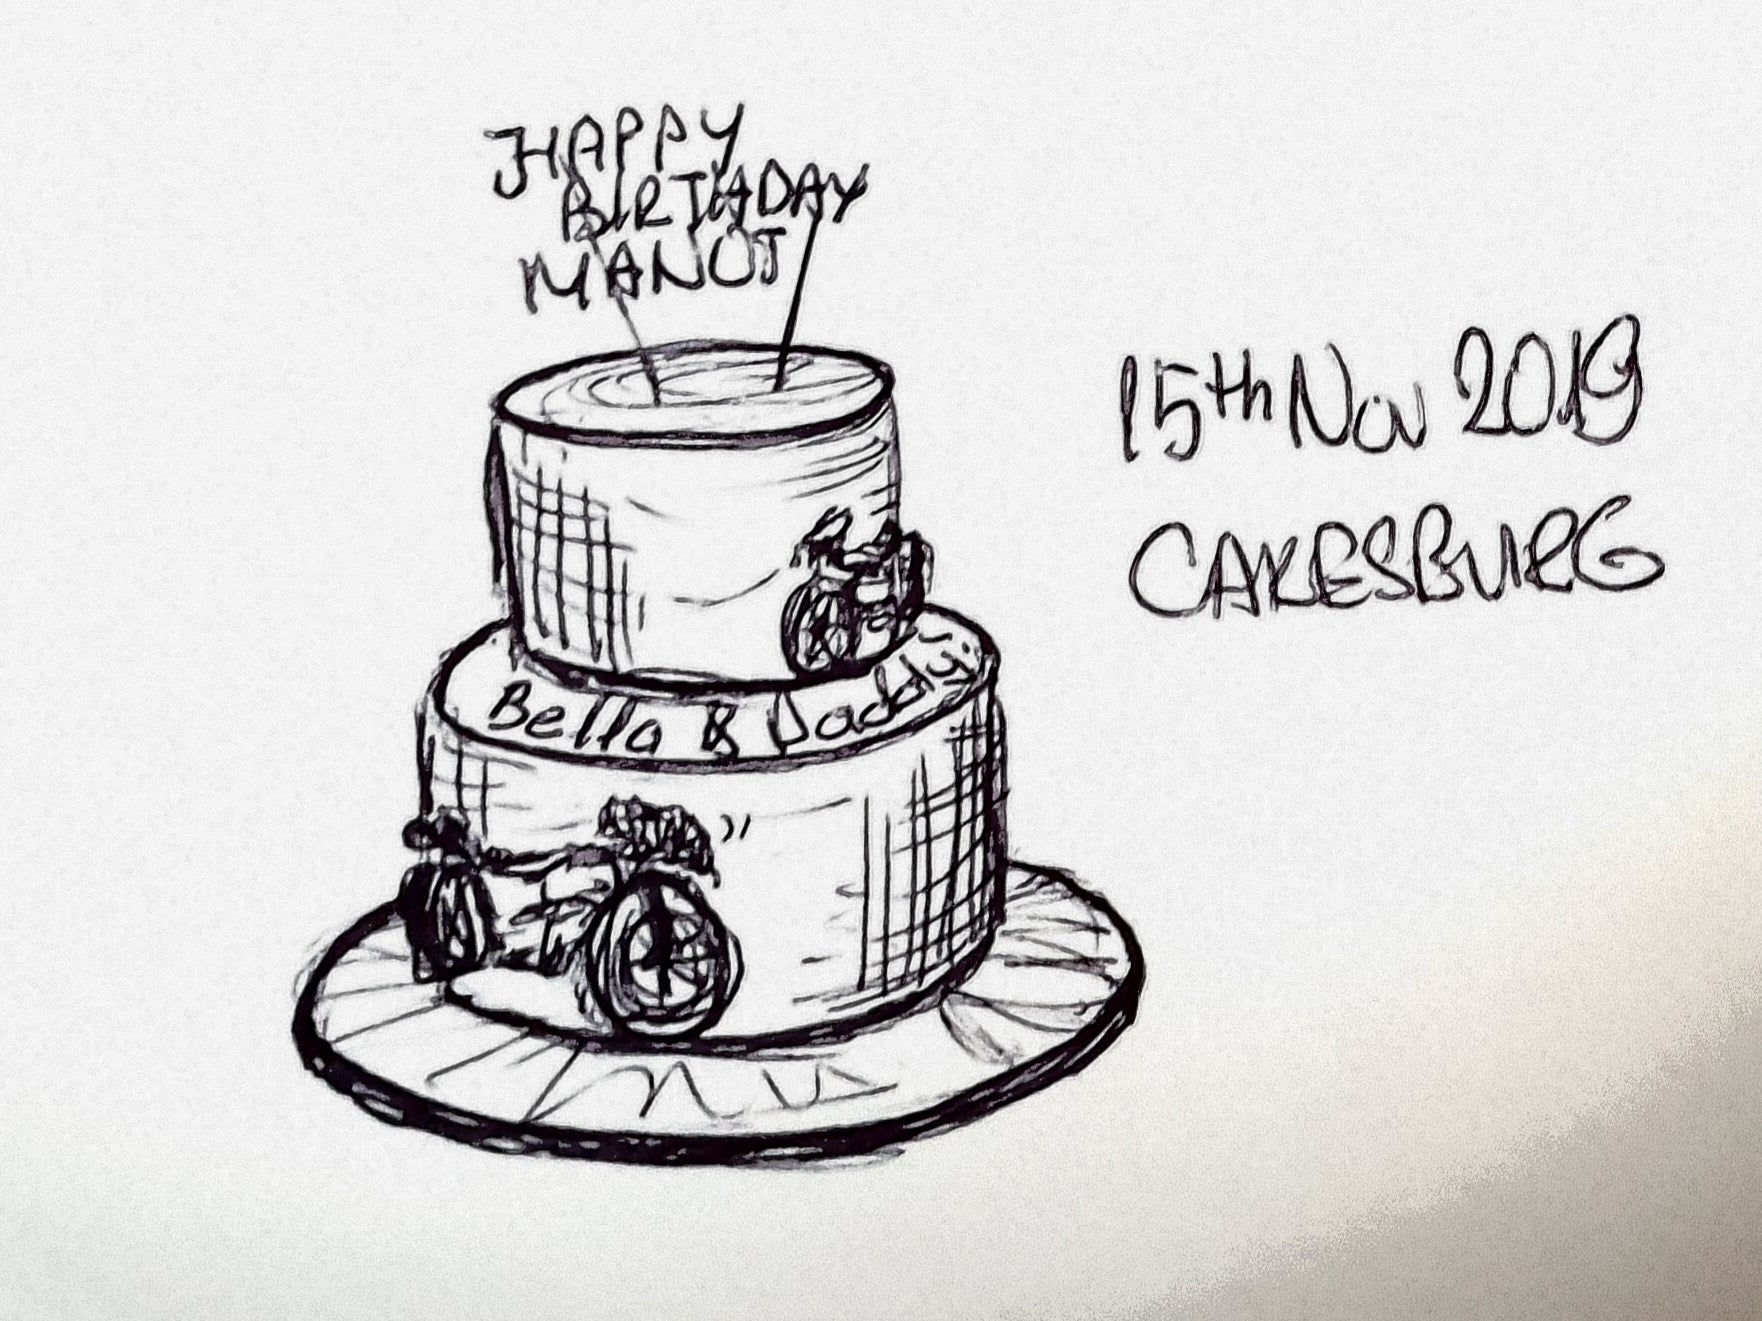 HAPPY
BIRTHDAY
MANOJ
15th Nov 2019
CAKESBURG
Bella & Daddy